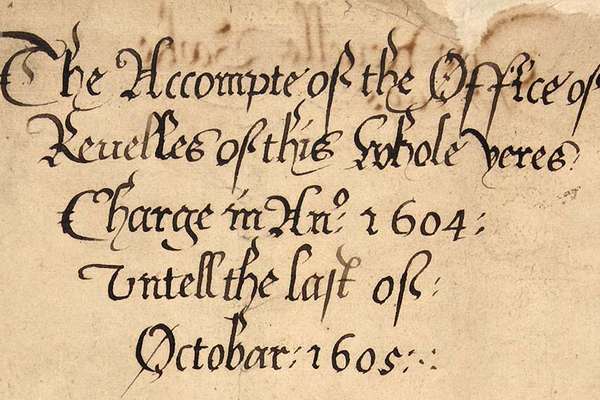 The Accompte of the Office of
Reuelles of this Whole yeres
Charge in Anº 1604:
Untell the last of:
Octobar: 1605: